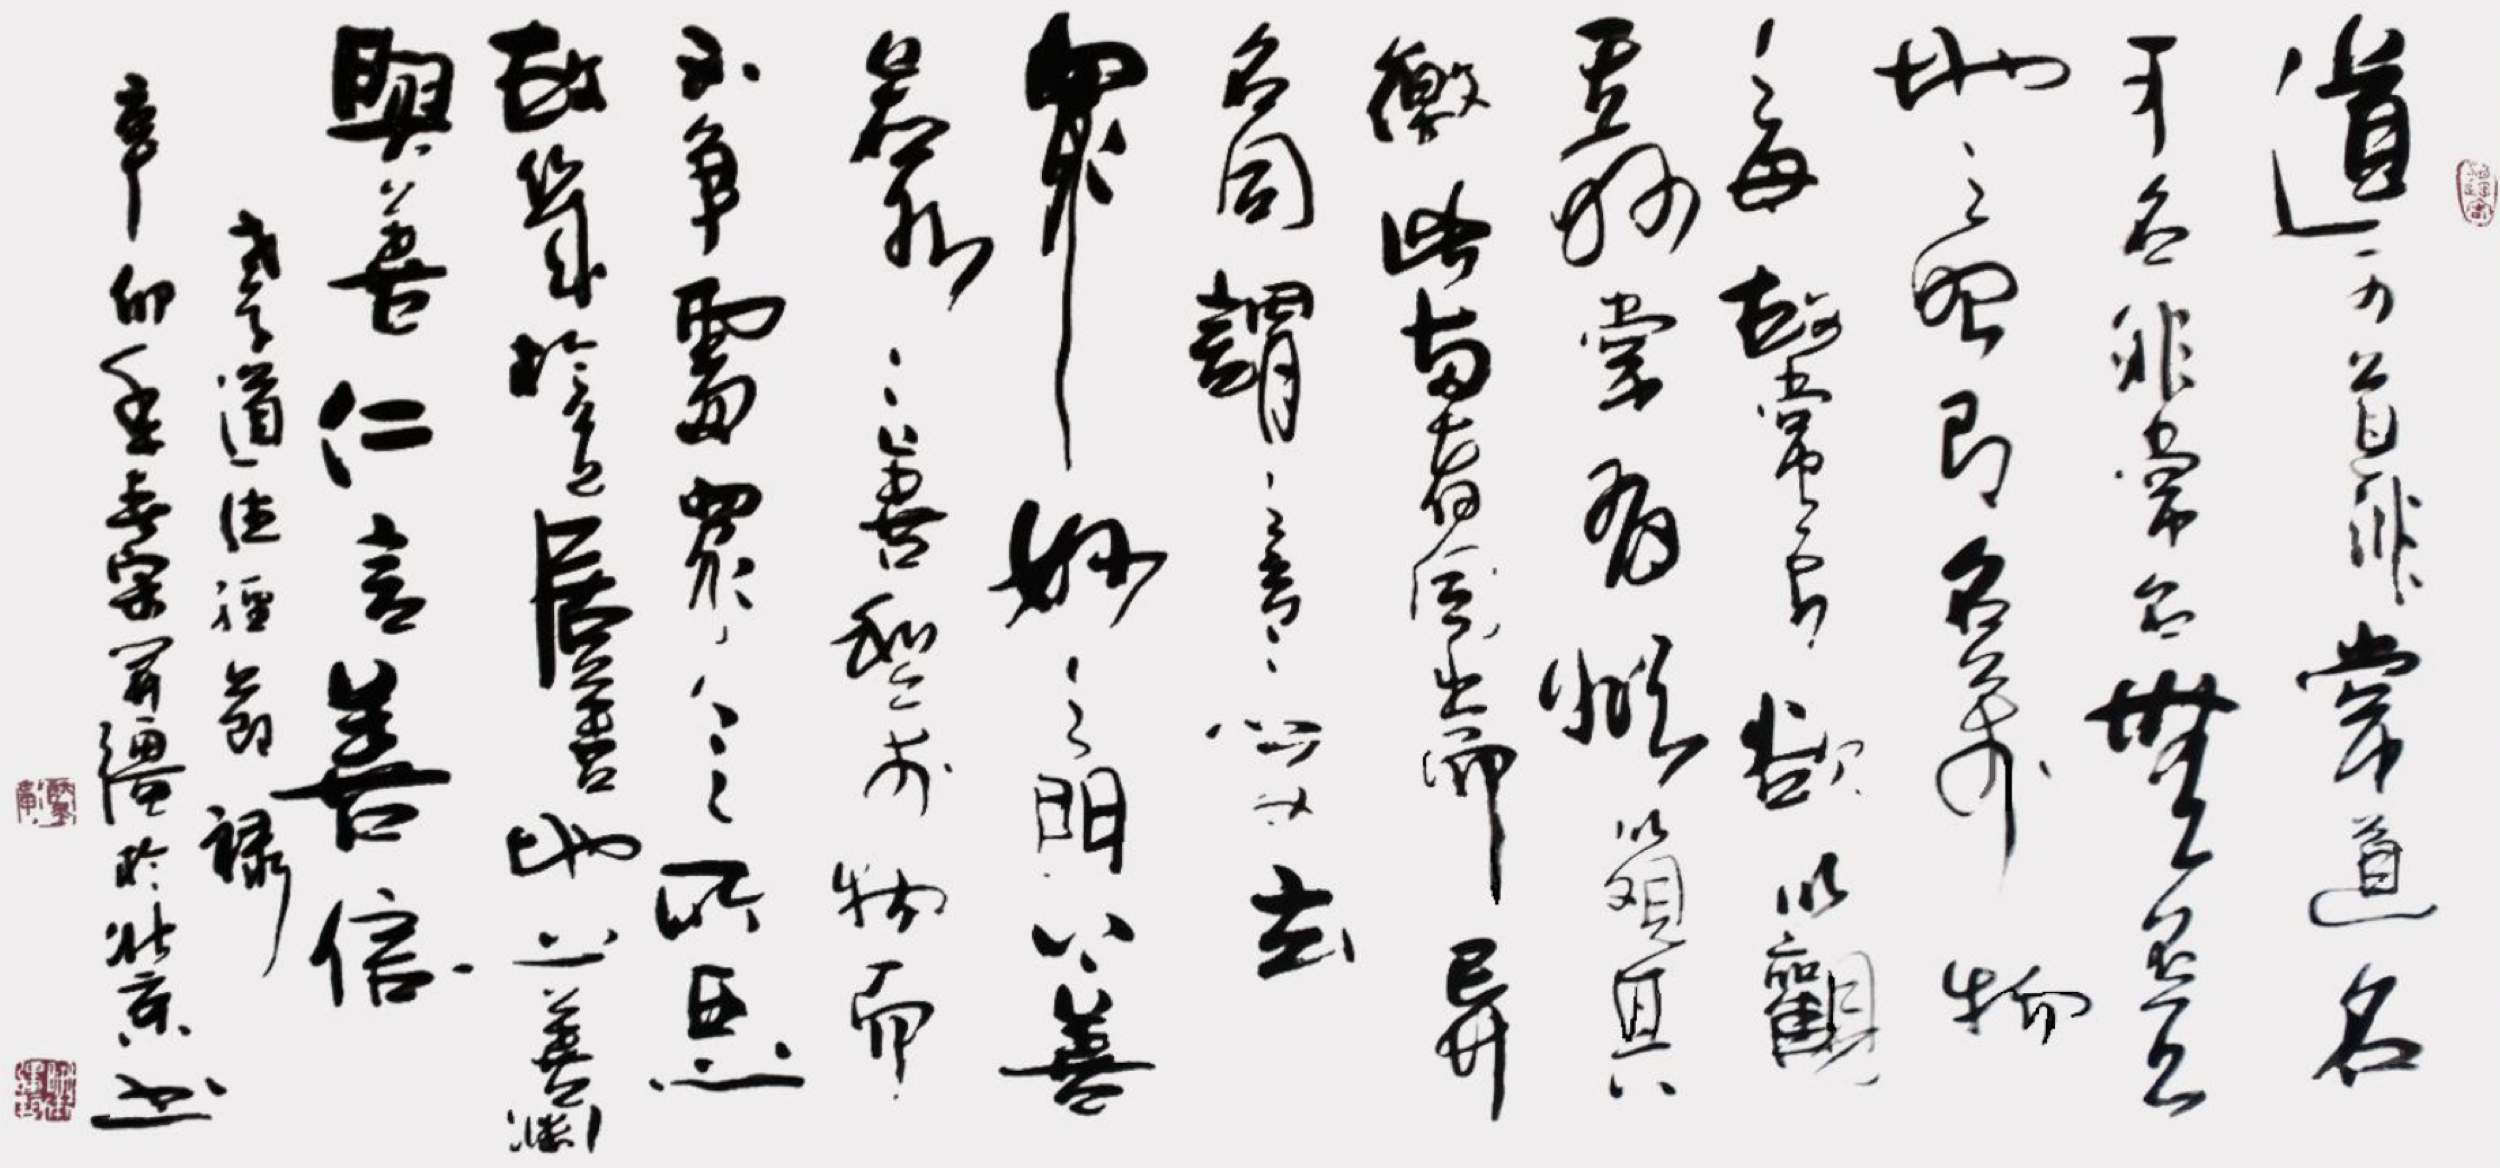 道可道非常道名
可名非常名無名天
地之始有名萬物
之母故常無欲以觀
其妙常有欲以觀其
徼此兩者同出而異
名同謂之玄玄之又玄
眾妙之門上善
若水水善利萬物而
不爭處眾人之所惡
故幾於道居善地心善淵
與善仁言善信
老子道德經節錄
辛卯年春宋開疆於北京